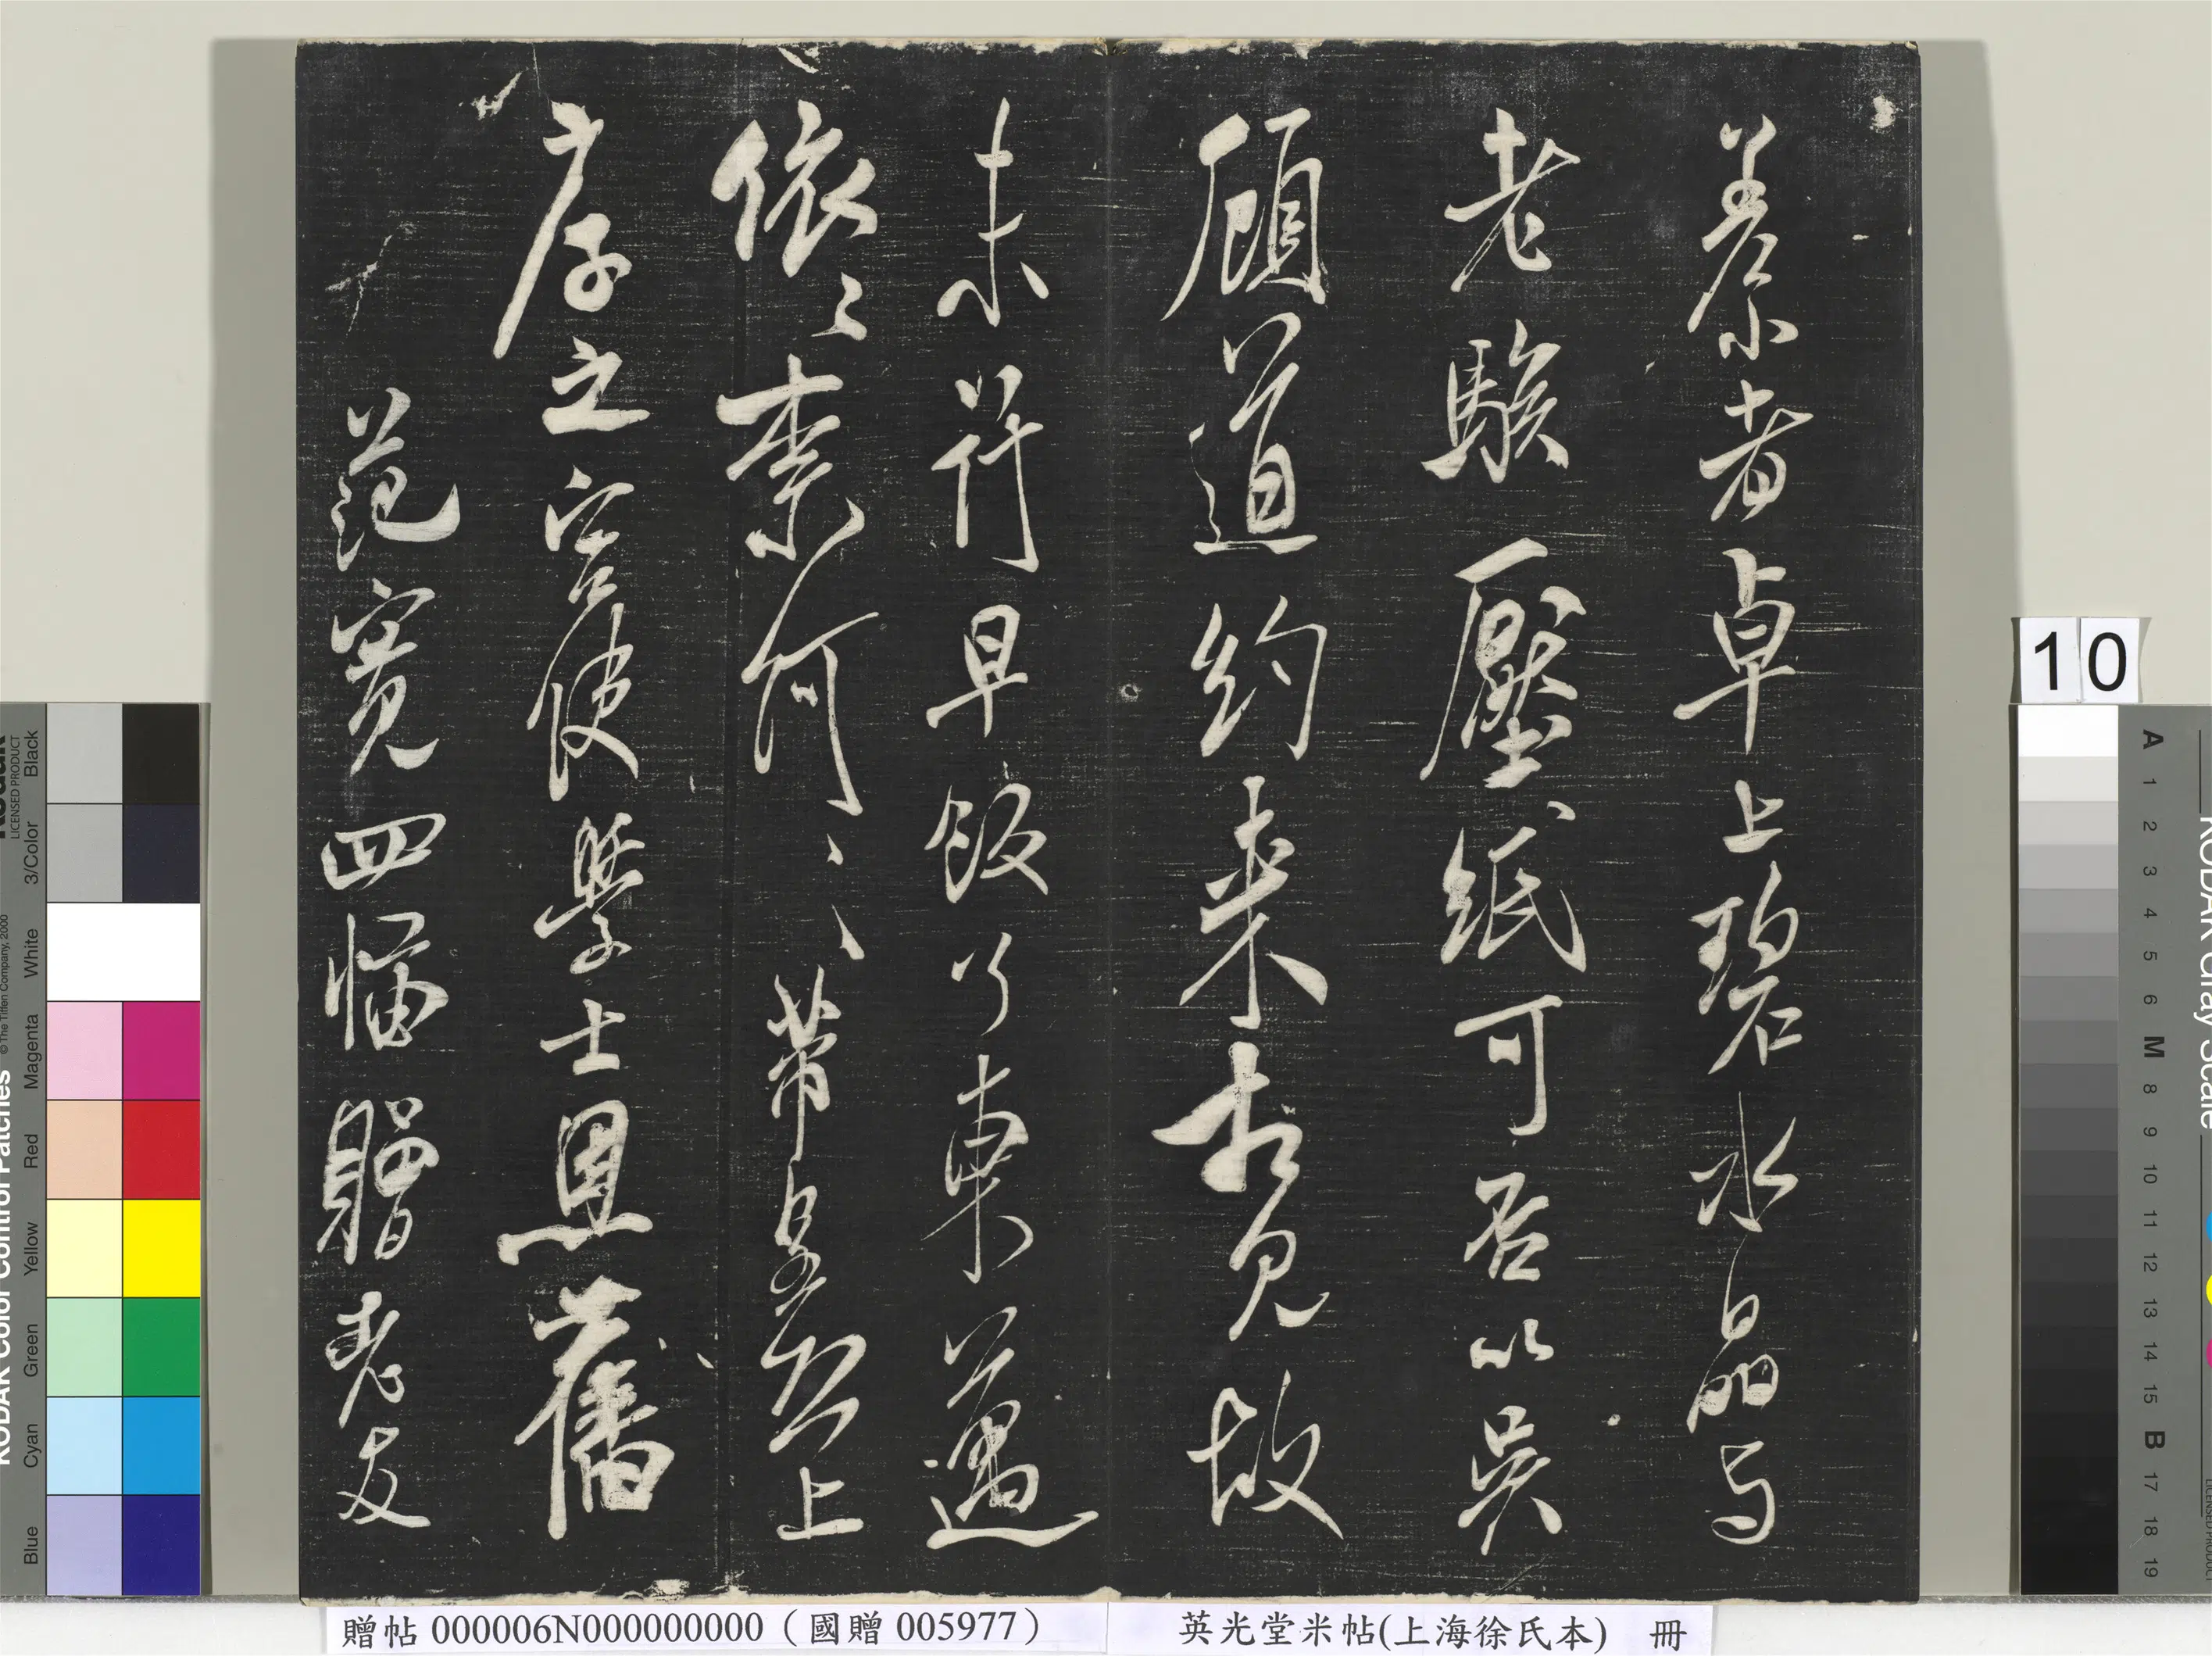 者卓上碧水晶与
老駿壓紙可否以吳
顧道約来相見故
未早飯了東邁
依〻柰何〻〻芾皇恐上
之宫使學士恩舊
范寬四幅贈老友
10
贈帖 000006N000000000（國贈 005977）
英光堂米帖(上海徐氏本)　冊
KODAK Color Control Patches
© The Tiffen Company, 2000
LICENSED PRODUCT
Blue Cyan Green Yellow Red Magenta White 3/Color Black
KODAK Gray Scale
A 1 2 3 4 5 6 M 8 9 10 11 12 13 14 15 B 17 18 19